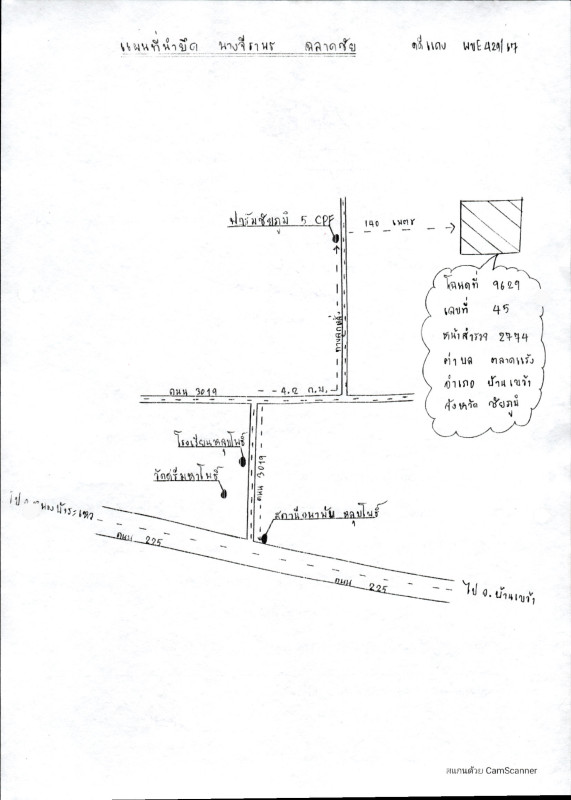 แผนที่นำยึด นางจีราพร ฉลาดชัย คดีแดง ผบE429/67
ฟาร์มชัยภูมิ 5 CPF
140 เมตร
โฉนดที่ 9629
เลขที่ 45
หน้าสำรวจ 2774
ตำบล ตลาดแร้ง
อำเภอ บ้านเขว้า
จังหวัด ชัยภูมิ
ทางลูกรัง
ถนน 3019
4.2 ก.ม.
โรงเรียนหลุบโพธิ์
วัดศรีมหาโพธิ์
ถนน 3019
สถานีอนามัย หลุบโพธิ์
ไป อ.หนองบัวระเหว
ถนน 225
ถนน 225
ไป อ.บ้านเขว้า
สแกนด้วย CamScanner